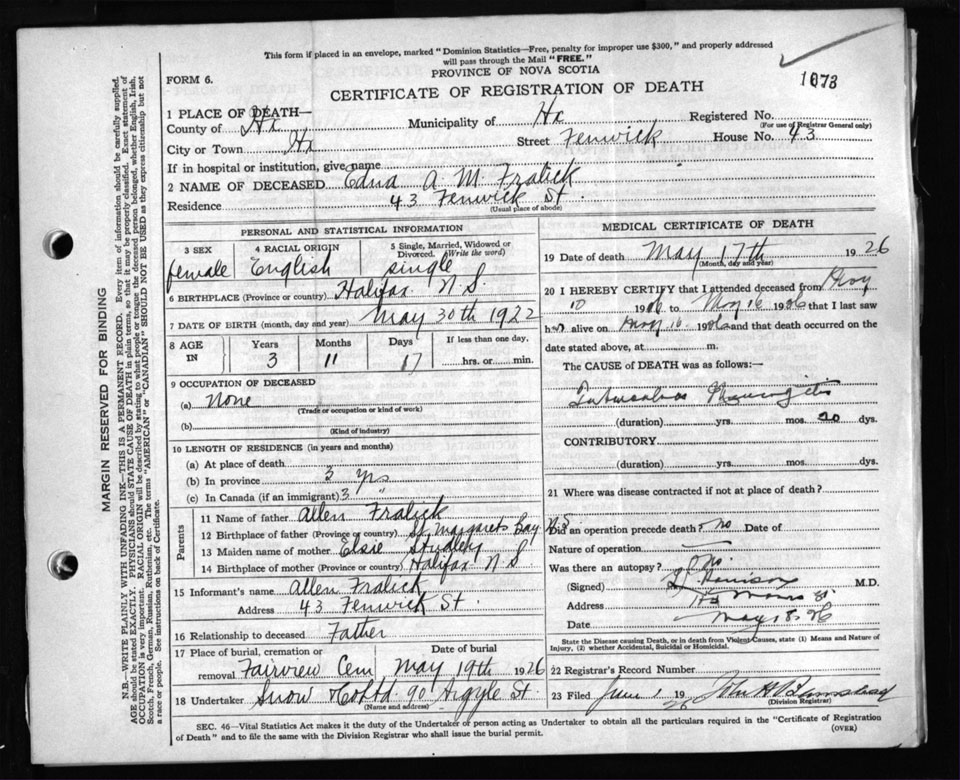 This form if placed in an envelope, marked "Dominion Statistics—Free, penalty for improper use $300," and properly addressed
will pass through the Mail "FREE."
PROVINCE OF NOVA SCOTIA
FORM 6.
1673
CERTIFICATE OF REGISTRATION OF DEATH
1 PLACE OF DEATH—
County of Hx Municipality of Hx Registered No.
(For use of Registrar General only)
City or Town Hx Street Fenwick House No. 43
If in hospital or institution, give name
2 NAME OF DECEASED Edna A. M. Fralick
Residence 43 Fenwick St.
(Usual place of abode)
PERSONAL AND STATISTICAL INFORMATION
3 SEX 4 RACIAL ORIGIN 5 Single, Married, Widowed or
Divorced. (Write the word)
female English single
6 BIRTHPLACE (Province or country) Halifax N.S.
7 DATE OF BIRTH (month, day and year) May 30th 1922
8 AGE IN Years Months Days If less than one day,
3 11 17 hrs. or min.
9 OCCUPATION OF DECEASED
(a) None
(Trade or occupation or kind of work)
(b)
(Kind of industry)
10 LENGTH OF RESIDENCE (in years and months)
(a) At place of death
(b) In province 3 yrs
(c) In Canada (if an immigrant) 3 "
Parents
11 Name of father Allen Fralick
12 Birthplace of father (Province or country) St. Margarets Bay N.S
13 Maiden name of mother Elsie Studley
14 Birthplace of mother (Province or country) Halifax N S
15 Informant's name Allen Fralick
Address 43 Fenwick St.
16 Relationship to deceased Father
17 Place of burial, cremation or Date of burial
removal Fairview Cem May 19th 1926
18 Undertaker Snow & Co Ltd. 90 Argyle St.
(Name and address)
MEDICAL CERTIFICATE OF DEATH
19 Date of death May 17th 1926
(Month, day and year)
20 I HEREBY CERTIFY that I attended deceased from May
10 1926 to May 16 1926 that I last saw
her alive on May 16 1926 and that death occurred on the
date stated above, at m.
The CAUSE of DEATH was as follows:—
Meningitis
(duration) yrs. mos. 20 dys.
CONTRIBUTORY
(duration) yrs. mos. dys.
21 Where was disease contracted if not at place of death?
Did an operation precede death? no Date of
Nature of operation —
Was there an autopsy? No
(Signed) M.D.
Address
Date May 18. 26
State the Disease causing Death, or in death from Violent Causes, state (1) Means and Nature of
Injury, (2) whether Accidental, Suicidal or Homicidal.
22 Registrar's Record Number
23 Filed June 1 1926
(Division Registrar)
SEC. 46—Vital Statistics Act makes it the duty of the Undertaker or person acting as Undertaker to obtain all the particulars required in the "Certificate of Registration
of Death" and to file the same with the Division Registrar who shall issue the burial permit.
(OVER)
MARGIN RESERVED FOR BINDING
N.B.—WRITE PLAINLY WITH UNFADING INK—THIS IS A PERMANENT RECORD. Every item of information should be carefully supplied.
AGE should be stated EXACTLY. PHYSICIANS should STATE CAUSE OF DEATH in plain terms, so that it may be properly classified. Exact statement of
OCCUPATION is very important. RACIAL ORIGIN will be described by stating to what people or tongue the deceased person belonged, whether English, Irish,
Scotch, French, German, Russian, Ruthenian, etc. The terms "AMERICAN" or "CANADIAN" SHOULD NOT BE USED as they express citizenship but not
a race or people. See instructions on back of Certificate.